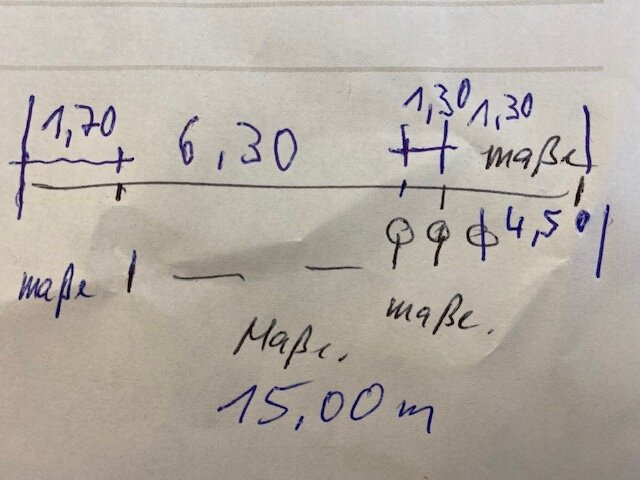 1,70 6,30 1,30 1,30
maße
4,50
maße
maße.
Maße.
15,00 m